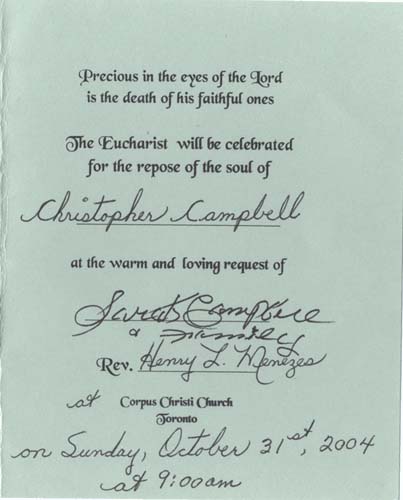 Precious in the eyes of the Lord
is the death of his faithful ones
The Eucharist will be celebrated
for the repose of the soul of
Christopher Campbell
at the warm and loving request of
Sarah Campbell
& Family
Rev. Henry L. Menezes
at Corpus Christi Church
Toronto
on Sunday, October 31st, 2004
at 9:00am